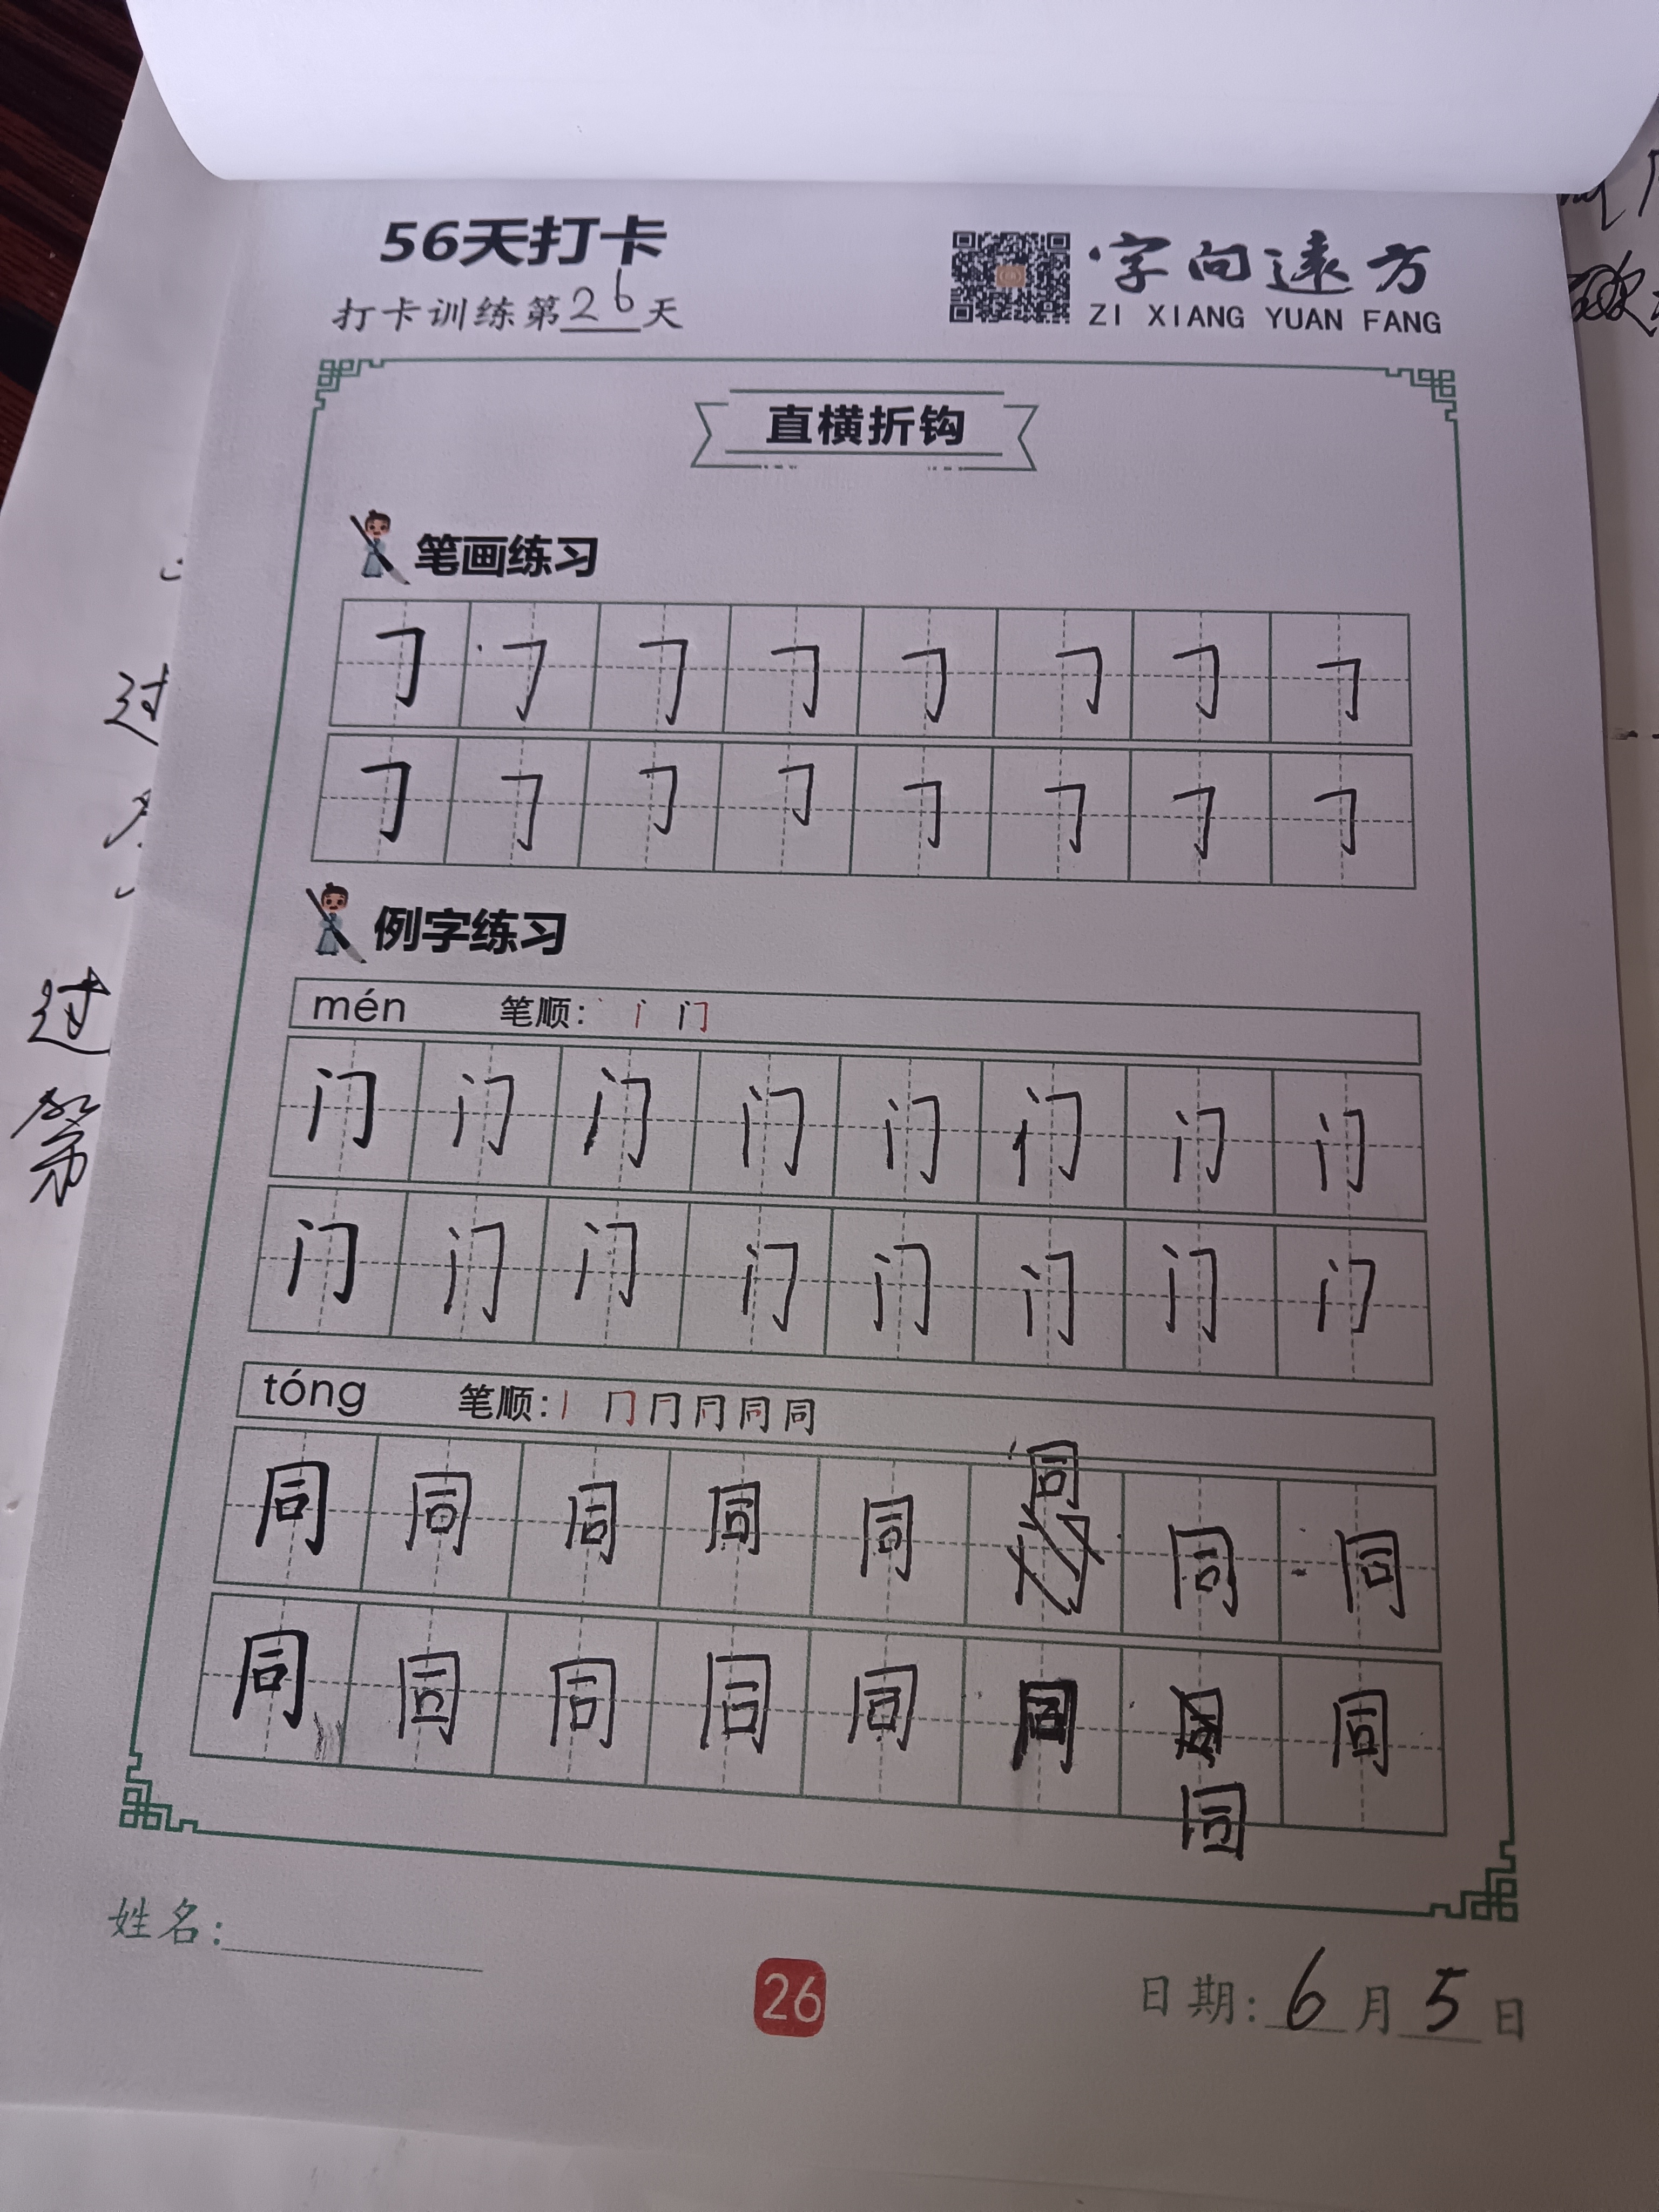 56天打卡
打卡训练第26天
字向远方
ZI XIANG YUAN FANG
直横折钩
笔画练习
㇆ ㇆ ㇆ ㇆ ㇆ ㇆ ㇆ ㇆
㇆ ㇆ ㇆ ㇆ ㇆ ㇆ ㇆ ㇆
例字练习
mén 笔顺: 门
门 门 门 门 门 门 门 门
门 门 门 门 门 门 门 门
tóng 笔顺: 丨 冂 同 同
同 同 同 同 同 同 同 同
同 同 同 同 同 同 同 同
姓名:
26
日期: 6月5日
过
过
第